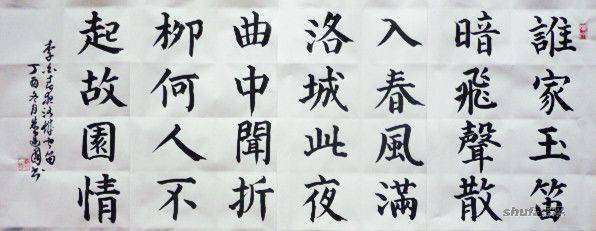 誰家玉笛
暗飛聲散
入春風滿
洛城此夜
曲中聞折
柳何人不
起故園情
李白春夜洛城聞笛
丁酉冬月